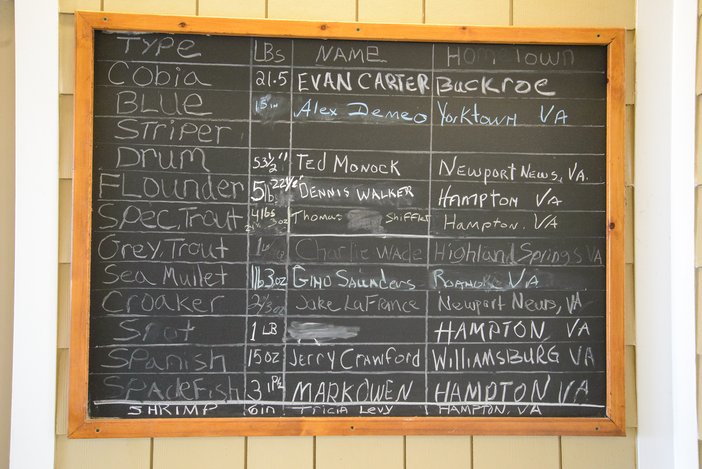 TYPE LBS NAME HOMETOWN
COBIA 21.5 EVAN CARTER BUCKROE
BLUE Alex Demeo Yorktown VA
STRIPER
DRUM 53½" TED MONOCK NEWPORT NEWS, VA.
FLOUNDER 5lb DENNIS WALKER HAMPTON VA
SPEC.TROUT 4lbs Thomas Shifflet Hampton, VA
GREY.TROUT Charlie Wade Highland Springs VA
SEA MULLET 1lb3oz GINO SAUNDERS ROANOKE VA
CROAKER Jake LaFrance Newport News, VA
SPOT 1 LB HAMPTON, VA
SPANISH 15 OZ JERRY CRAWFORD WILLIAMSBURG VA
SPADEFISH 3 MARK OWEN HAMPTON VA
SHRIMP 6in. TRICIA LEVY HAMPTON, VA